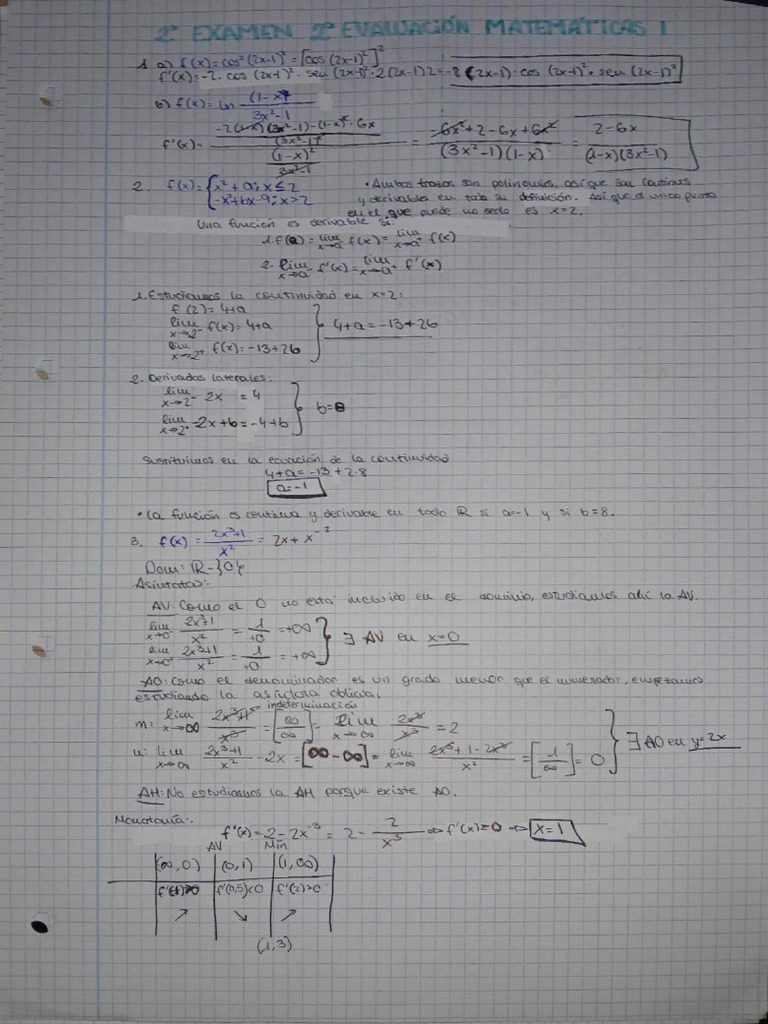 2º EXAMEN 2ª EVALUACIÓN MATEMÁTICAS I
1. a) f(x)=cos²(2x-1)² = [cos(2x-1)²]²
f'(x)=-2·cos(2x-1)²·sen(2x-1)²·2(2x-1)2=-8(2x-1)·cos(2x-1)²·sen(2x-1)²
b) f(x)= ln (1-x)²/3x²-1
f'(x)= [-2(1-x)(3x²-1)-(1-x)²·6x / (3x²-1)²] / [(1-x)²/3x²-1] = -6x²+2-6x+6x² / (3x²-1)(1-x) = 2-6x / (1-x)(3x²-1)
2. f(x)= { x²+a; x≤2
-x²+bx-9; x>2
• Ambos trozos son polinomios, así que son continuos
y derivables en toda su definición. Así que el único punto
en el que puede no serlo es x=2.
Una función es derivable si:
1. f(a)= lim x→a⁻ f(x)= lim x→a⁺ f(x)
2. lim x→a⁻ f'(x)= lim x→a⁺ f'(x)
1. Estudiamos la continuidad en x=2:
f(2)=4+a
lim x→2⁻ f(x)=4+a } 4+a=-13+2b
lim x→2⁺ f(x)=-13+2b
2. Derivadas laterales:
lim x→2⁻ 2x = 4
} b=8
lim x→2⁺ -2x+b=-4+b
Sustituimos en la ecuación de la continuidad
4+a=-13+2·8
a=-1
• La función es continua y derivable en todo ℝ si a=-1 y si b=8.
3. f(x)= 2x³+1/x² = 2x+x⁻²
Dom: ℝ-{0}
Asíntotas:
AV: Como el 0 no está incluido en el dominio, estudiamos ahí la AV.
lim x→0⁻ 2x³+1/x² = 1/+0 = +∞
} ∃ AV en x=0
lim x→0⁺ 2x³+1/x² = 1/+0 = +∞
AO: Como el denominador es un grado menor que el numerador, empezamos
estudiando la asíntota oblicua.
indeterminación
m: lim x→∞ 2x³+1/x³ = [∞/∞] = lim x→∞ 2x³/x³ = 2
n: lim x→∞ 2x³+1/x² - 2x = [∞-∞] = lim x→∞ 2x³+1-2x³/x² = [1/∞] = 0 } ∃ AO en y=2x
AH: No estudiamos la AH porque existe AO.
Monotonía:
f'(x)=2-2x⁻³ = 2 - 2/x³ ⇒ f'(x)=0 ⇒ x=1
AV Mín
(∞,0) (0,1) (1,∞)
f'(-1)>0 f'(0,5)<0 f'(2)>0
↗ ↘ ↗
(1,3)